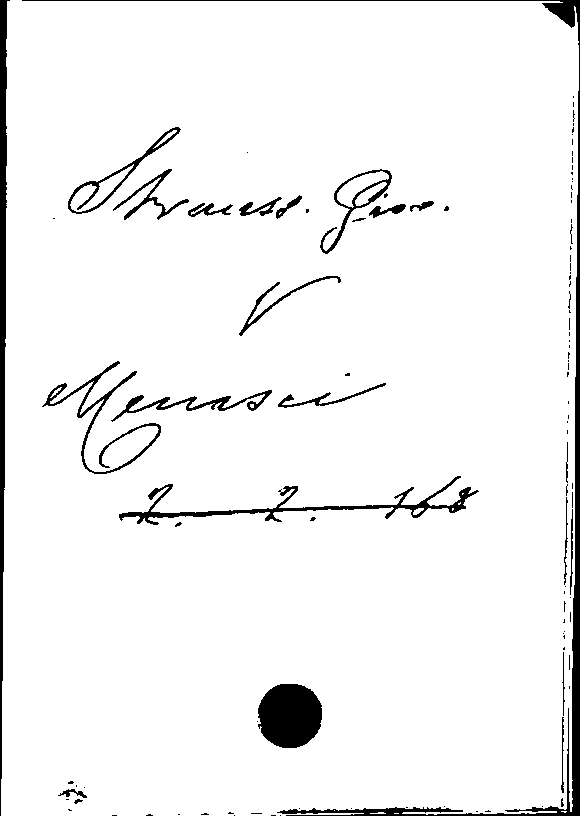 Strauss. Giov.
V
Menasci
Z. Z. 168